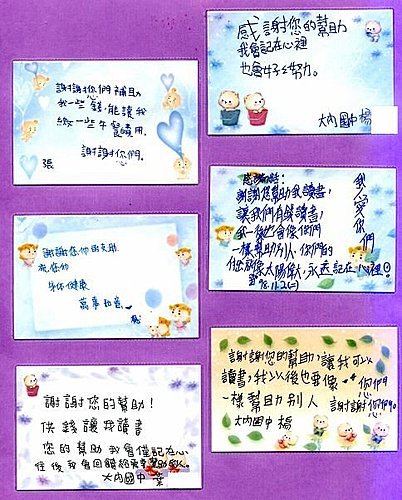 謝謝你們補助
我一些錢,能讓我
繳一些午餐費用.
謝謝你們.
張
謝謝您們的支助
祝您們
身体健康
萬事如意
謝謝您的幫助!
供錢讓我讀書
您的幫助我會僅記在心
往後我會回饋給
大內國中 葉
感謝您的幫助
我會記在心裡
也會好好努力。
大內國中 楊
感恩的話:
謝謝您幫助我讀書,
讓我們有錢讀書,
我以後也會像你們
一樣幫助別人,你們的
永遠記在心裡!
98.11.2(一)
我愛你們
謝謝您的幫助,讓我可以
讀書,我以後也要像 您們
一樣幫助別人 謝謝您們。
大內國中 楊